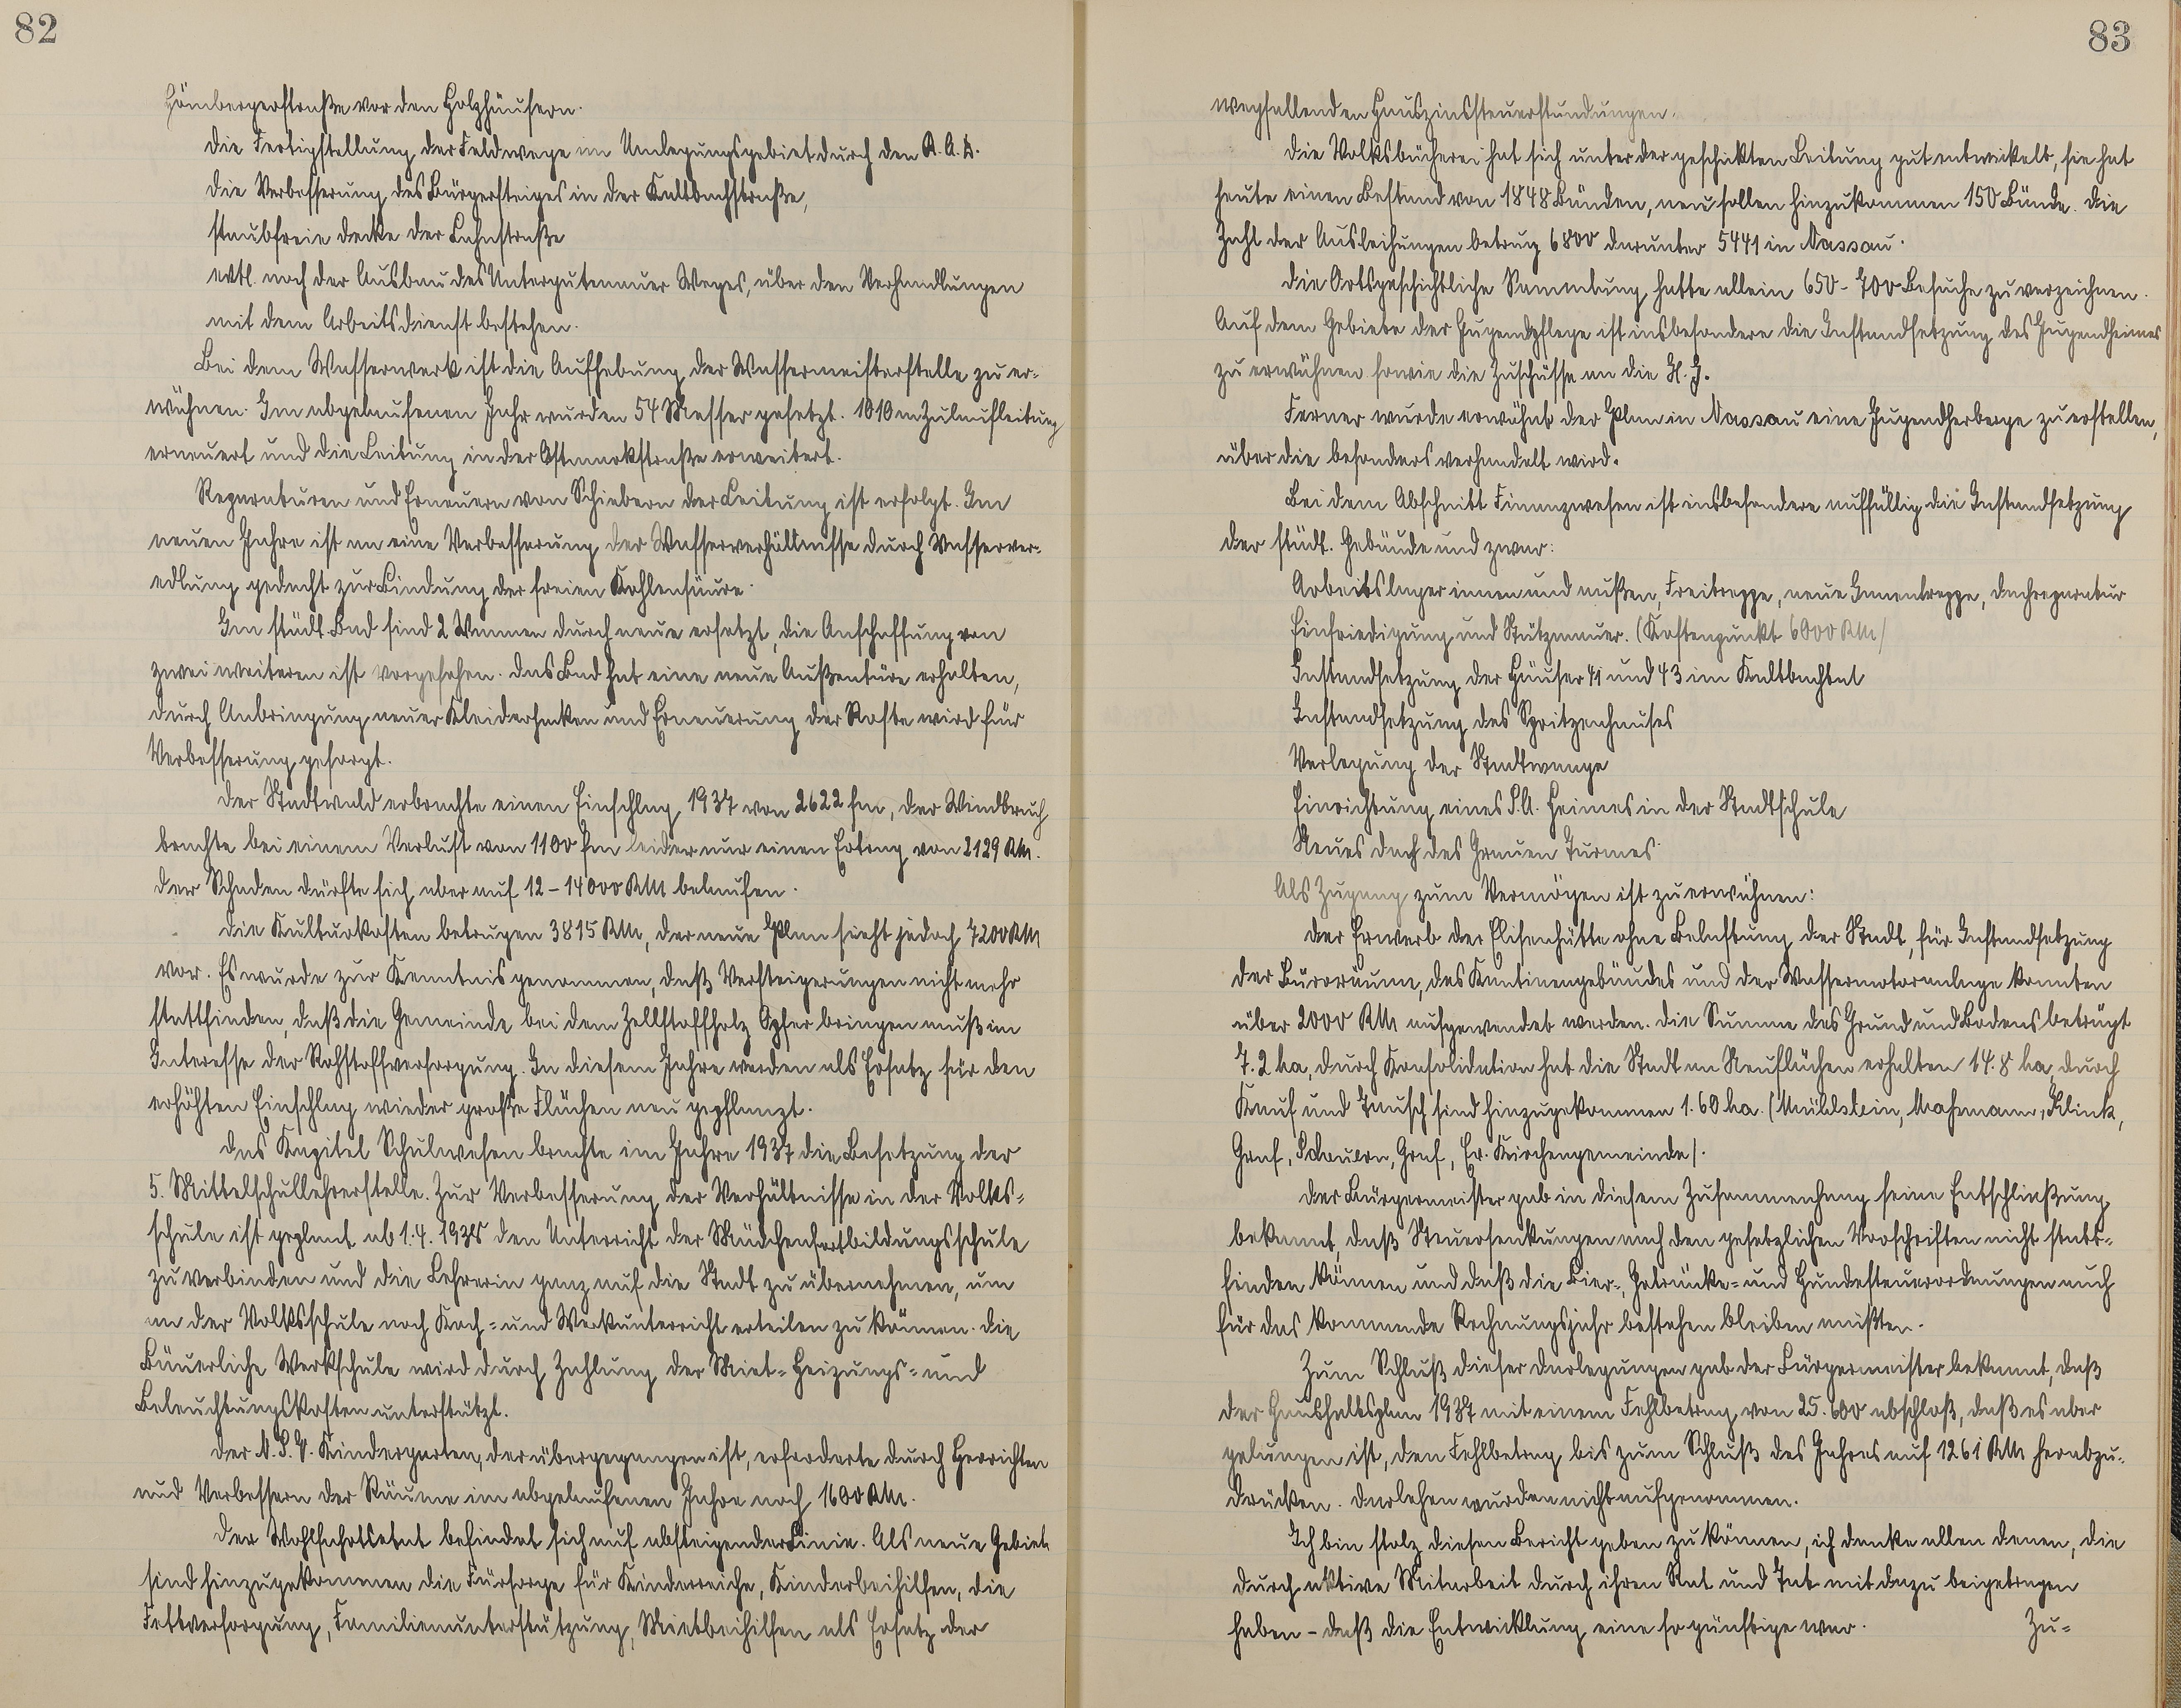 82
Hömbergerstraße vor den Holzhäusern.
die Fertigstellung der Feldwege im Umlegungsgebiet durch den R.A.D.
die Verbesserung des Bürgersteiges in der Kaltbachstraße,
staubfreie Decke der Lahnstraße
evtl. noch der Ausbau des Untergutenauer Weges, über den Verhandlungen
mit dem Arbeitsdienst bestehen.
Bei dem Wasserwerk ist die Aufhebung der Wassermeisterstelle zu er-
wähnen. Im abgelaufenen Jahr wurden 54 Messer gesetzt. 1010 m Zulaufleitung
erneuert und die Leitung in der Ostmarkstraße erweitert.
Reparaturen und Erneuern von Schiebern der Leitung ist erfolgt. Im
neuen Jahre ist an eine Verbesserung der Wasserverhältnisse durch Wasserver-
edlung gedacht zur Bindung der freien Kohlensäure.
Im städt. Bad sind 2 Wannen durch neue ersetzt, die Anschaffung von
zwei weiteren ist vorgesehen. Das Bad hat eine neue Außentüre erhalten,
durch Anbringung neuer Kleiderhaken und Erneuerung der Roste wird für
Verbesserung gesorgt.
Der Stadtwald erbrachte einen Einschlag 1937 von 2622 fm, der Windbruch
brachte bei einem Verlust von 1100 fm leider nur einen Ertrag von 2129 RM.
Der Schaden dürfte sich aber auf 12-14000 RM belaufen.
Die Kulturkosten betrugen 3815 RM, der neue Plan sieht jedoch 7200 RM
vor. Es wurde zur Kenntnis genommen, daß Versteigerungen nicht mehr
stattfinden, daß die Gemeinde bei dem Zellstoffholz Opfer bringen muß im
Interesse der Rohstoffversorgung. In diesem Jahre werden als Ersatz für den
erhöhten Einschlag wieder große Flächen neu gepflanzt.
Das Kapitel Schulwesen brachte im Jahre 1937 die Besetzung der
5. Mittelschullehrerstelle. Zur Verbesserung der Verhältnisse in der Volks-
schule ist geplant ab 1.4.1938 den Unterricht der Mädchenfortbildungsschule
zu verbinden und die Lehrerin ganz auf die Stadt zu übernehmen, um
an der Volksschule noch Koch- und Werkunterricht erteilen zu können. Die
Bäuerliche Werkschule wird durch Zahlung der Miet- Heizungs- und
Beleuchtungskosten unterstützt.
Der N.S.V. Kindergarten, der übergegangen ist, erforderte durch Herrichten
und Verbessern der Räume im abgelaufenen Jahre noch 1600 RM.
Der Wohlfahrtsetat befindet sich auf absteigender Linie. Als neue Gebiete
sind hinzugekommen die Fürsorge für Kinderreiche, Kinderbeihilfen, die
Fettversorgung, Familienunterstützung, Mietbeihilfen als Ersatz der
83
wegfallenden Hauszinssteuerstundungen.
Die Volksbücherei hat sich unter der geschickten Leitung gut entwickelt, sie hat
heute einen Bestand von 1848 Bänden, neu sollen hinzukommen 150 Bände. Die
Zahl der Ausleihungen betrug 6800 darunter 5441 in Nassau.
Die Ortsgeschichtliche Sammlung hatte allein 650-700 Besuche zu verzeichnen.
Auf dem Gebiete der Jugendpflege ist insbesondere die Instandsetzung des Jugendheimes
zu erwähnen sowie die Zuschüsse an die H.J.
Ferner wurde erwähnt der Plan in Nassau eine Jugendherberge zu erstellen,
über die besonders verhandelt wird.
Bei dem Abschnitt Finanzwesen ist insbesondere auffällig die Instandsetzung
der städt. Gebäude und zwar:
Arbeitslager innen und außen, Freitreppe, neue Innentreppe, Dachreparatur
Einfriedigung und Stützmauer. (Kostenpunkt 6000 RM)
Instandsetzung der Häuser 41 und 43 im Kaltbachtal
Instandsetzung des Spritzenhauses
Verlegung der Stadtwaage
Einrichtung eines S.A. Heimes in der Stadtschule
Neues Dach des Grauen Turmes
Als Zugang zum Vermögen ist zu erwähnen:
der Erwerb der Elisenhütte ohne Belastung der Stadt, für Instandsetzung
der Büroräume, des Kantinengebäudes und der Wassermotoranlage konnten
über 2000 RM aufgewendet werden. Die Summe des Grund und Bodens beträgt
7.2 ha, durch Konsolidation hat die Stadt an Neuflächen erhalten 14.8 ha, durch
Kauf und Tausch sind hinzugekommen 1.60 ha. (Mühlstein, Mahrmann, Klink,
Graf, Scheuern, Graf, Ev. Kirchengemeinde).
Der Bürgermeister gab in diesem Zusammenhang seine Entschließung
bekannt, daß Steuersenkungen nach den gesetzlichen Vorschriften nicht statt-
finden können und daß die Bier-, Getränke- und Hundesteuerordnungen auch
für das kommende Rechnungsjahr bestehen bleiben müßten.
Zum Schluß dieser Darlegungen gab der Bürgermeister bekannt, daß
der Haushaltsplan 1937 mit einem Fehlbetrag von 25.600 abschloß, daß es aber
gelungen ist, den Fehlbetrag bis zum Schluß des Jahres auf 1261 RM herabzu-
drücken. Darlehen wurden nicht aufgenommen.
Ich bin stolz diesen Bericht geben zu können, ich danke allen denen, die
durch aktive Mitarbeit durch ihren Rat und Tat mit dazu beigetragen
haben - daß die Entwicklung eine so günstige war.
Zu-